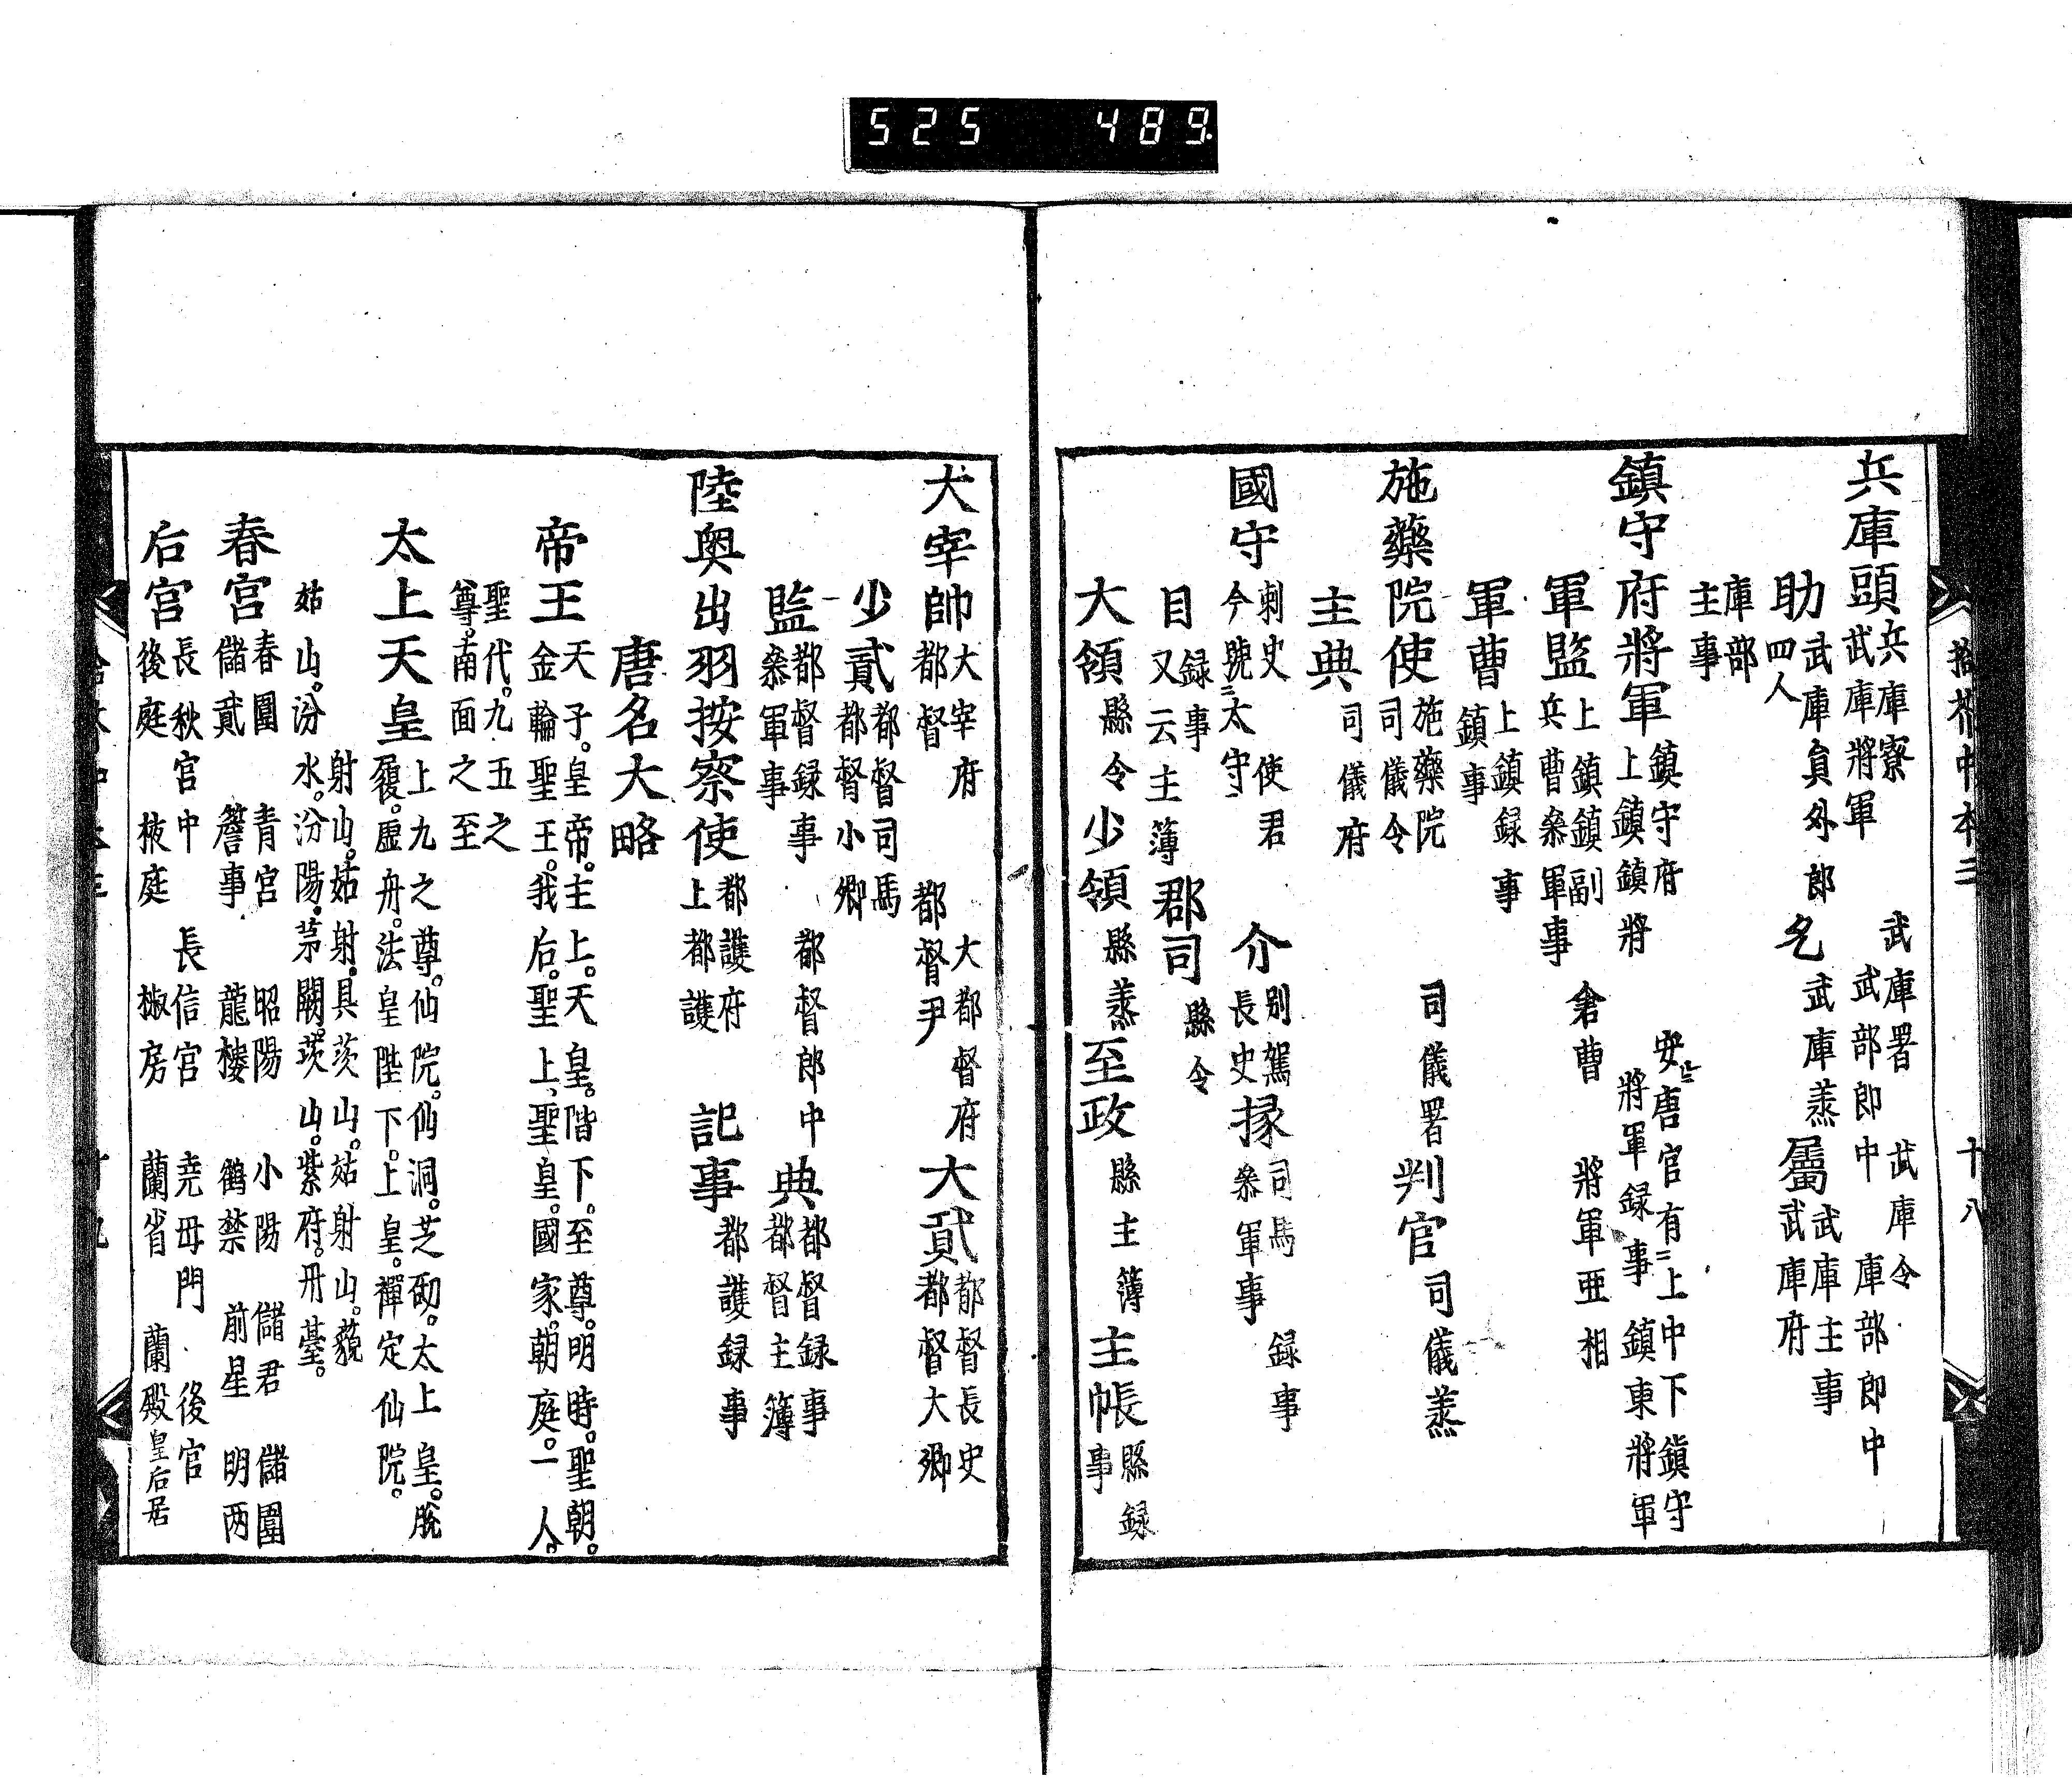 525 489
拾芥中本三 十八
兵庫頭 兵庫寮 武庫署 武庫令
武庫將軍 武部郎中 庫部郎中
助 武庫員外郎 允 武庫丞 屬 武庫主事
四人 武庫府
庫部
主事
鎮守府將軍 鎮守府 安唐官有上中下鎮守
上鎮鎮將 將軍録事 鎮東將軍
軍監 上鎮鎮副 倉曹 將軍亜相
兵曹叅軍事
軍曹 上鎮録事
鎮事
施藥院使 施藥院 司儀署 判官 司儀丞
司儀令
主典 司儀府
國守 刺史 使君 介 別駕 掾 司馬 録事
今號太守 長史 叅軍事
目 録事 郡司 縣令
又云主薄
大領 縣令 少領 縣丞 至政 縣主簿 主帳 縣録事
大宰帥 大宰府 大都督府 大貳 都督長史
都督 都督尹 都督大卿
少貳 都督司馬
都督小卿
監 都督録事 都督郎中 典 都督録事
叅軍事 都督主簿
陸奥出羽按察使 都護府 記事 都護録事
上都護
唐名大略
帝王 天子。皇帝。主上。天皇。階下。至尊。明時。聖朝。
金輪聖王。我后。聖上、聖皇。國家。朝庭。一人。
聖代。九五之
尊。南面之至
太上天皇 上九之尊。仙院。仙洞。芝砌。太上皇。脱
屣。虚舟。法皇陛下。上皇。禪定仙院。
射山。姑射。具茨山。姑射山。藐
姑山。汾水。汾陽。茅闕。茨山。紫府。丹䑓。
春宮 春圍 青宮 昭陽 小陽 儲君 儲圍
儲貳 詹事 龍樓 鶴禁 前星 明両
后宮 長秋宮中 長信宮 堯母門 後官
後庭 掖庭 椒房 蘭省 蘭殿 皇后居